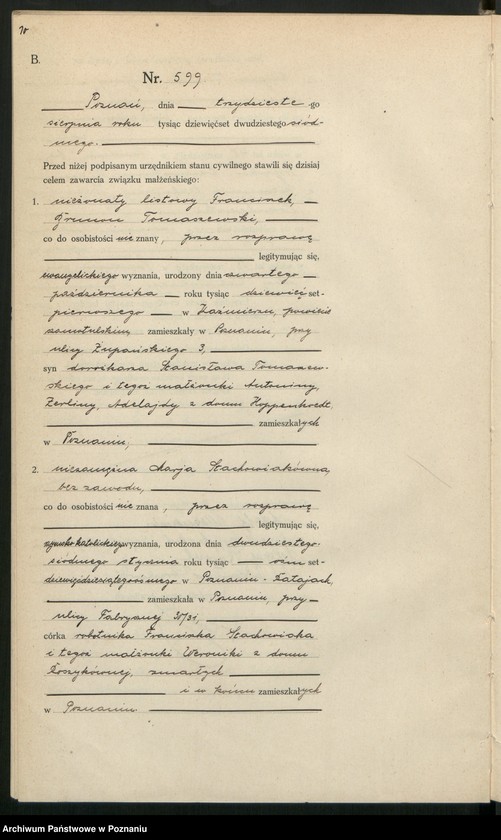 B.
Nr. 599
Poznań, dnia trzydzieste-go
sierpnia roku tysiąc dziewięćset dwudziestego siód-
mego.
Przed niżej podpisanym urzędnikiem stanu cywilnego stawili się dzisiaj
celem zawarcia związku małżeńskiego:
1. nieżonaty listowy Franciszek,
Brunon Tomaszewski,
co do osobistości nie znany, przez rozprawę
legitymując się,
ewangelickiego wyznania, urodzony dnia czwartego
października roku tysiąc dziewięćset-
pierwszego w Kaźmierzu, powiecie
szamotulskim zamieszkały w Poznaniu, przy
ulicy Żupańskiego 3,
syn dorożkarza Stanisława Tomaszew-
skiego i tegoż małżonki Antoniny,
Zerliny, Adelajdy z domu Hoppenheit,
zamieszkałych
w Poznaniu;
2. niezamężna Marja Stachowiakówna,
bez zawodu,
co do osobistości nie znana, przez rozprawę
legitymując się,
rzymsko katolickiego wyznania, urodzona dnia dwudziestego
siódmego stycznia roku tysiąc ośmset-
dziewięćdziesiątego ósmego w Poznaniu-Łazarzu,
zamieszkała w Poznaniu, przy
ulicy Fabrycznej 30/31,
córka robotnika Franciszka Stachowiaka
i tegoż małżonki Weroniki z domu
zmarłych
i w końcu zamieszkałych
w Poznaniu
Archiwum Państwowe w Poznaniu